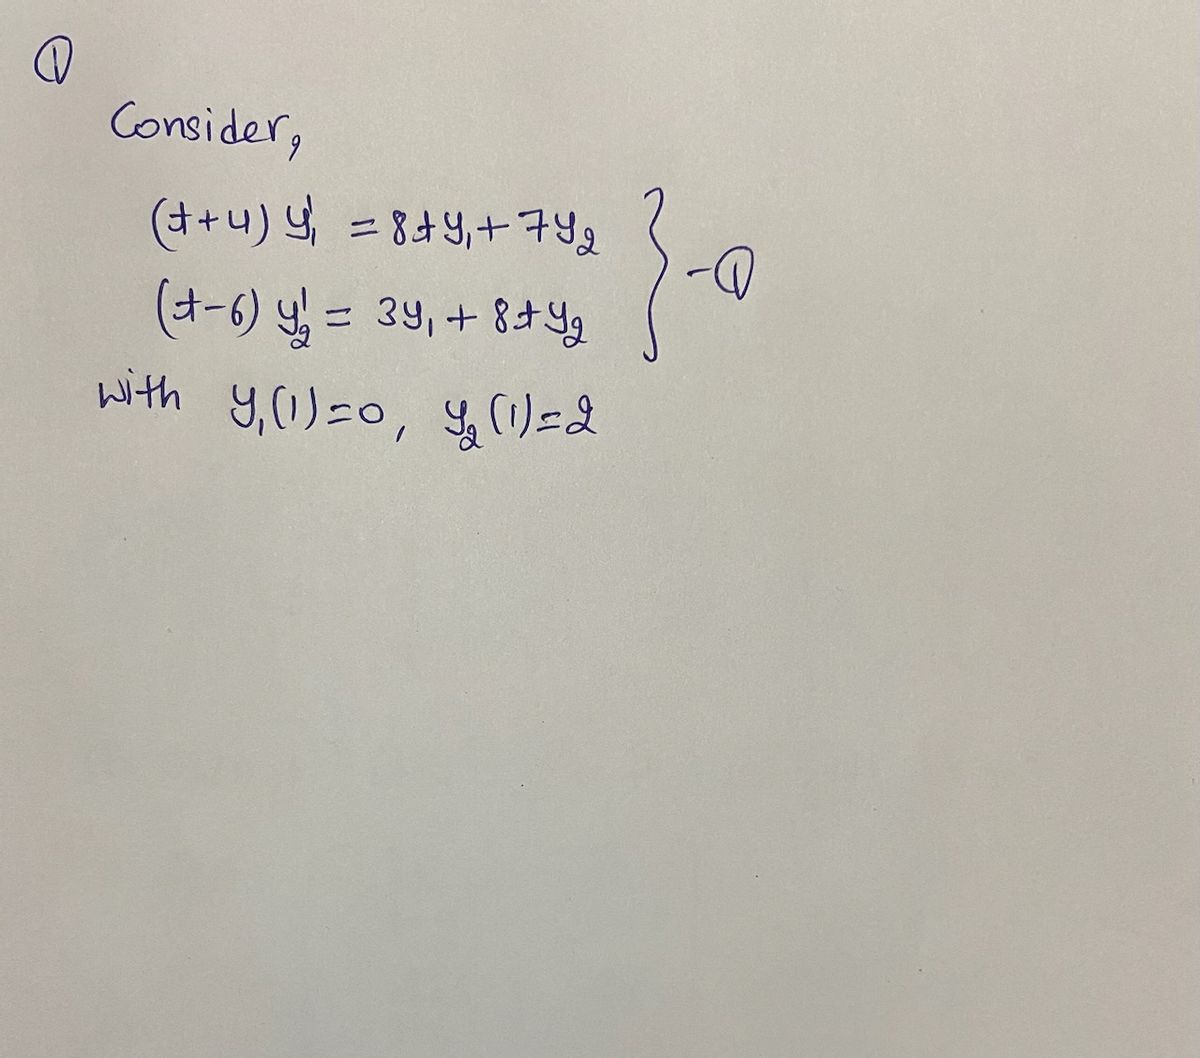 ①
Consider,
(t+4) y₁' = 8ty₁ + 7y₂
(t-6) y₂' = 3y₁ + 8ty₂ } -①
with y₁(1)=0, y₂(1)=2